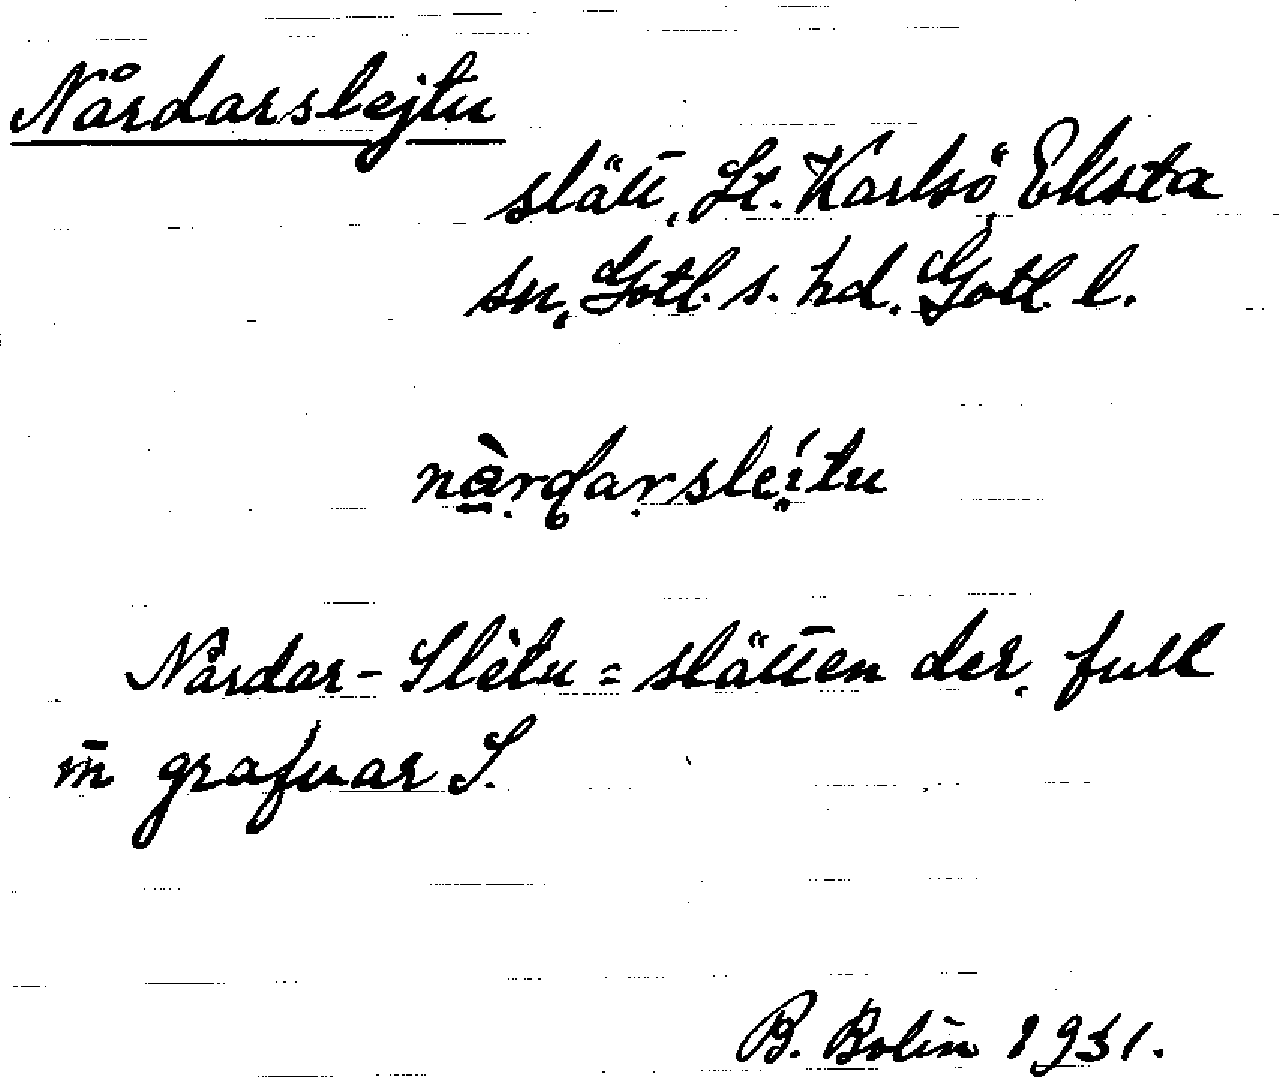 Nårdarslejtu
slätt, St. Karlsö, Eksta
sn, Gotl. s. hd. Gotl. l.
Nårdar-Slètu = slätten der full
m̄ grafvar S.
B. Bolin 1931.